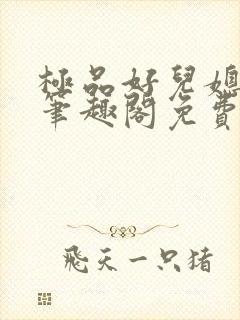 極品好兒媳
筆趣閣免費
飛天一只猪